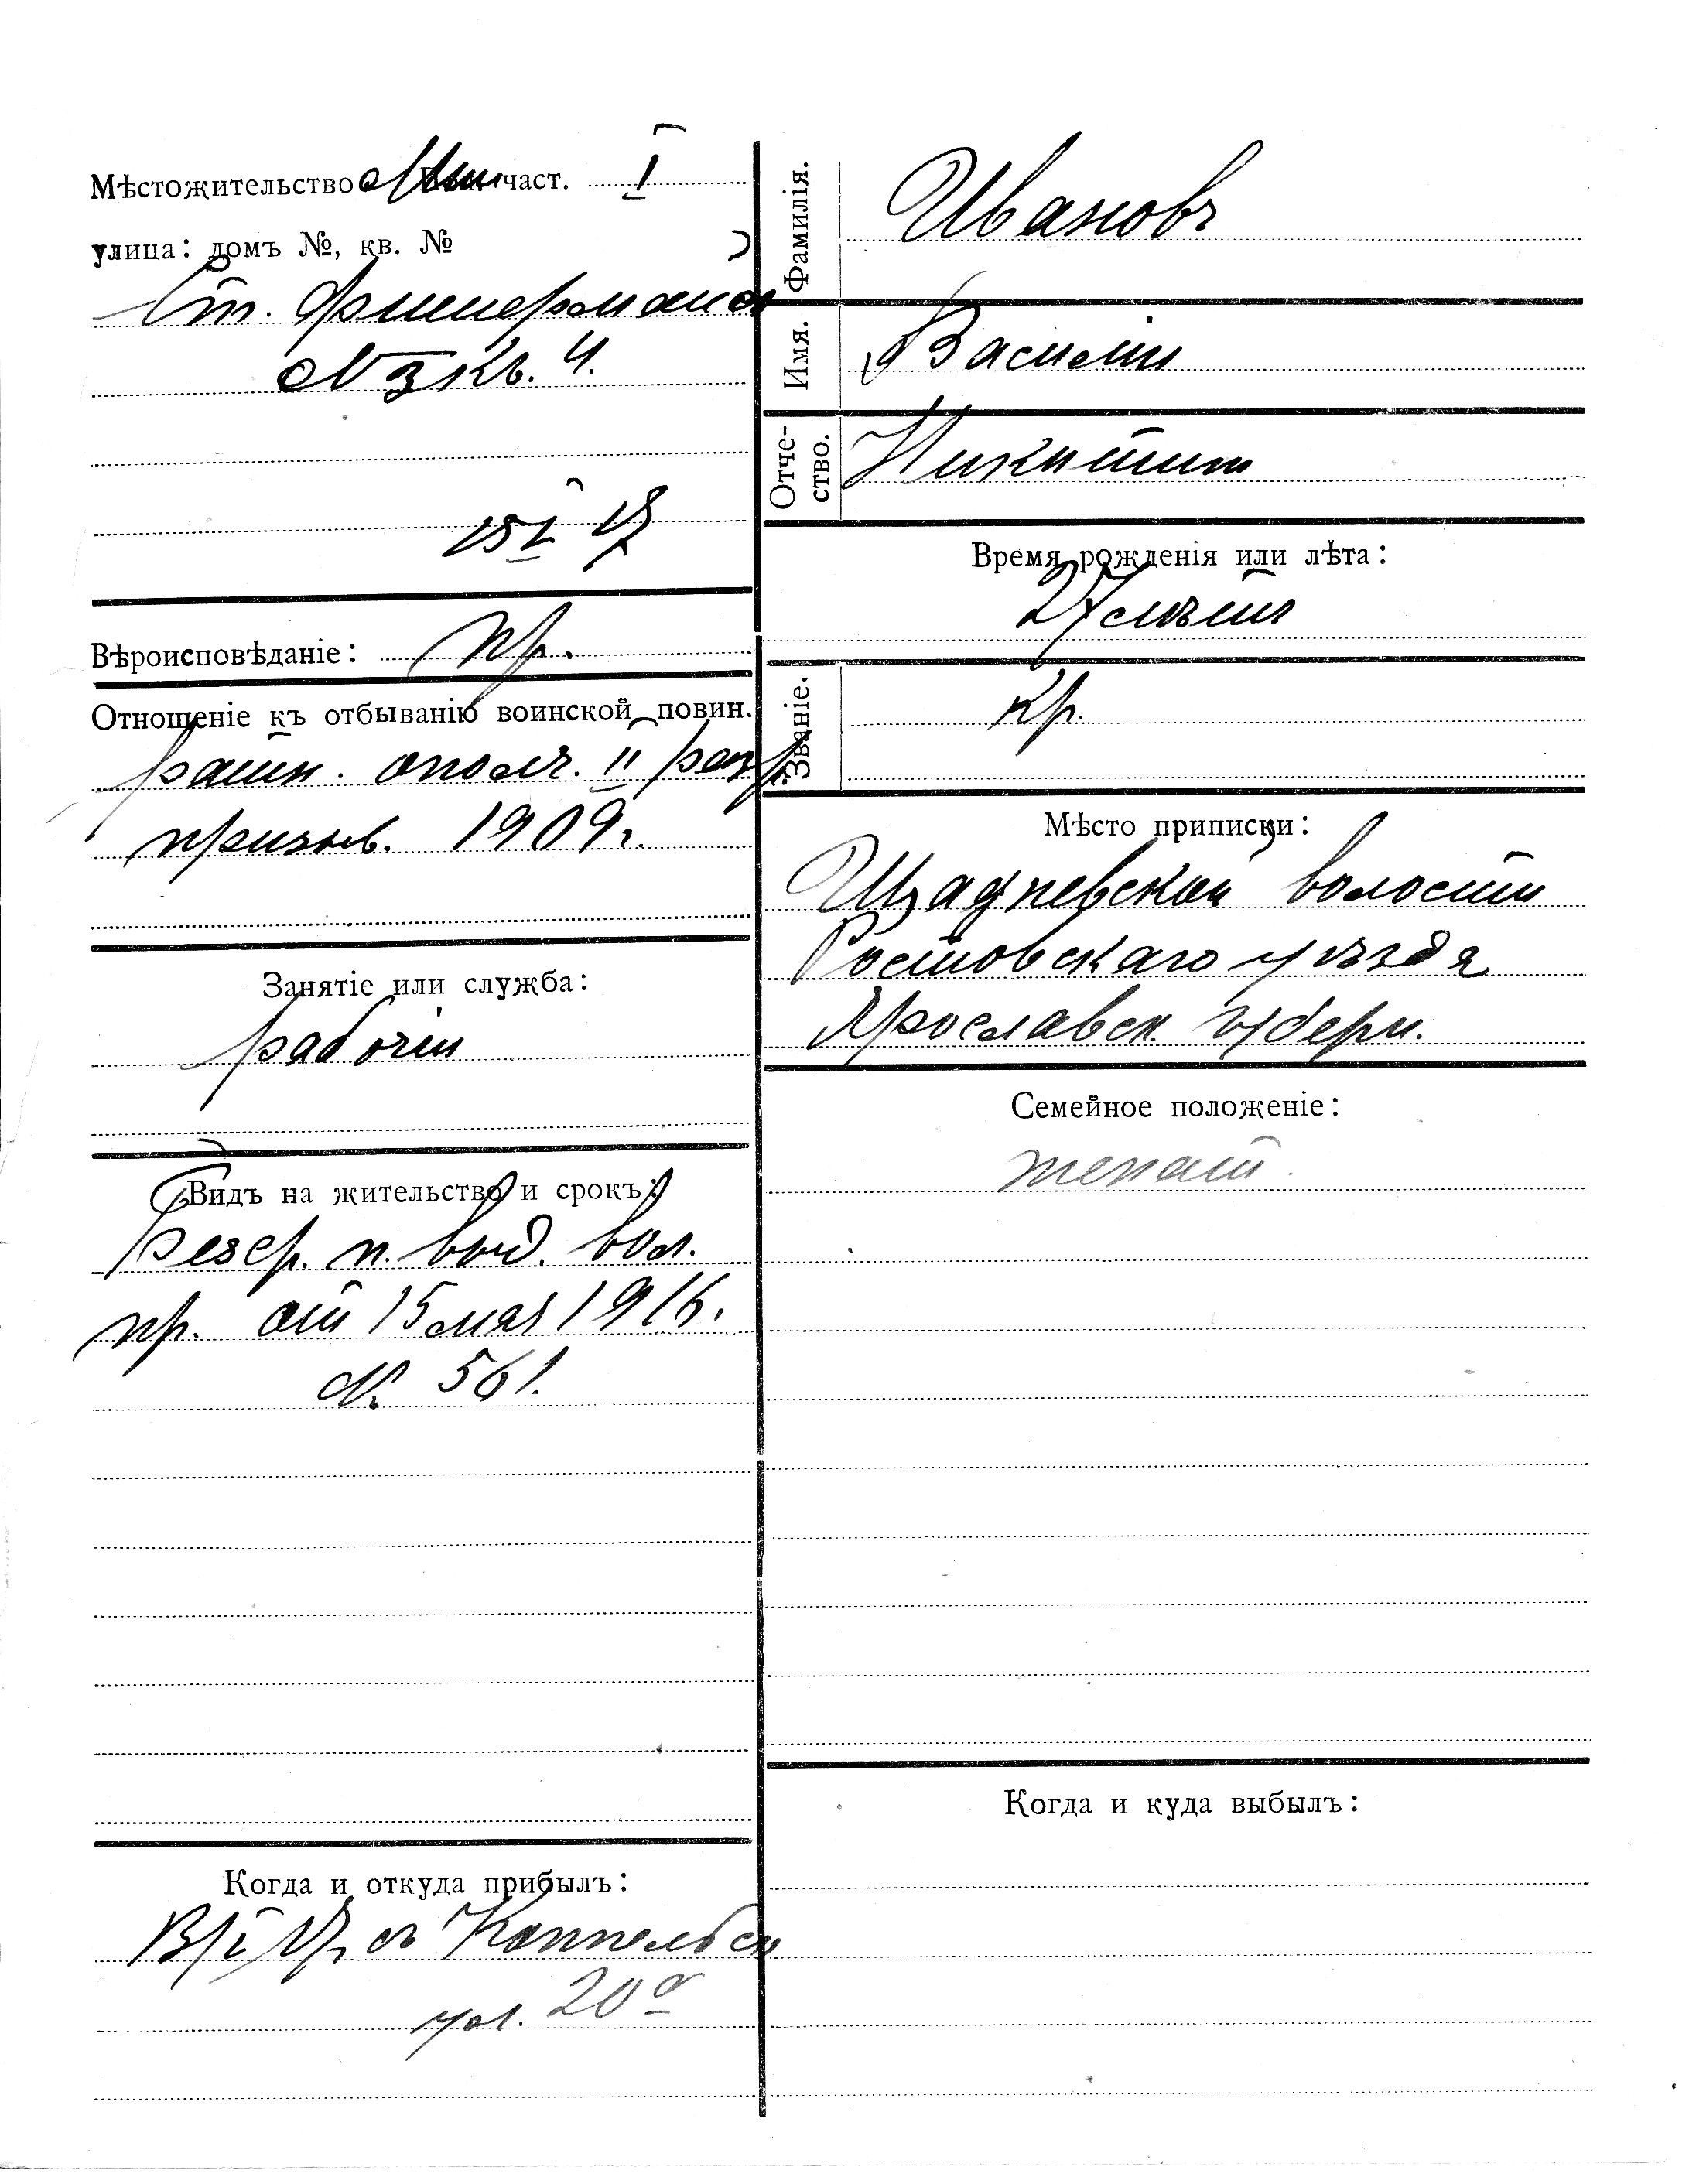 Мѣстожительство част. I
улица: домъ №, кв. №
Ст. Фишермайс
№ 3 кв. 4.
15 I 17
Вѣроисповѣданіе: пр.
Отношеніе къ отбыванію воинской повин.
ратн. ополч. II разр.
призыв. 1909 г.
Занятіе или служба:
рабочій
Видъ на жительство и срокъ:
безср. п. выд. вол.
пр. от 15 мая 1916.
№ 561.
Когда и откуда прибылъ:
съ Коппельск
ул. 20а
Фамилія. Ивановъ
Имя. Василій
Отчество. Никитин
Время рожденія или лѣта:
27 лѣтъ
Званіе. кр.
Мѣсто приписки:
волости
Ростовскаго уѣзда
Ярославск. губерн.
Семейное положеніе:
женат.
Когда и куда выбылъ: